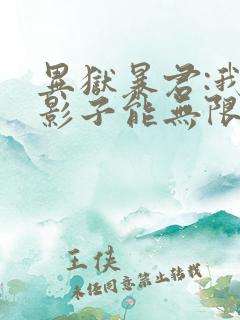 異獄暴君:我
影子能無限
王侠
未经同意禁止转载